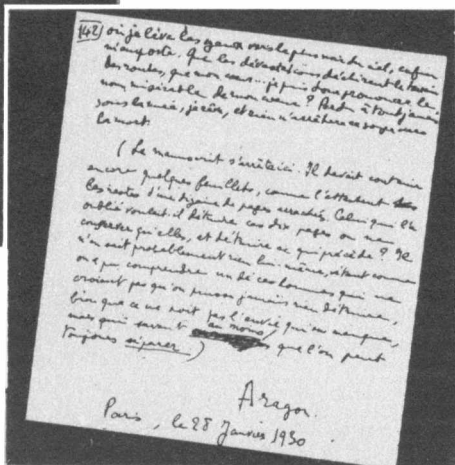 142) où je lève les yeux vers le plus noir du ciel, enfin
n'importe. Que les dévastations déchirent le
des routes, que mon cœur... je puis donc prononcer le
nom misérable de mon cœur ? Perdu à tout jamais
sous la nuée, je crie, et rien n'arrêtera ce songe vers
la mort.
(Le manuscrit s'arrête ici. Il devait contenir
encore quelques feuillets, comme l'attestent
les restes d'une dizaine de pages arrachées. Celui qui l'a
oublié voulait-il détruire ces dix pages ou ne
conserver qu'elles, et détruire ce qui précède ? Il
n'en sait probablement rien lui-même, étant comme
on a pu comprendre un de ces hommes qui ne
croient pas qu'on puisse jamais rien détruire,
bien que ce ne soit pas l'envie qui en manque,
mais qui savent au moins que l'on peut
toujours séparer)
Aragon
Paris, le 28 Janvier 1930